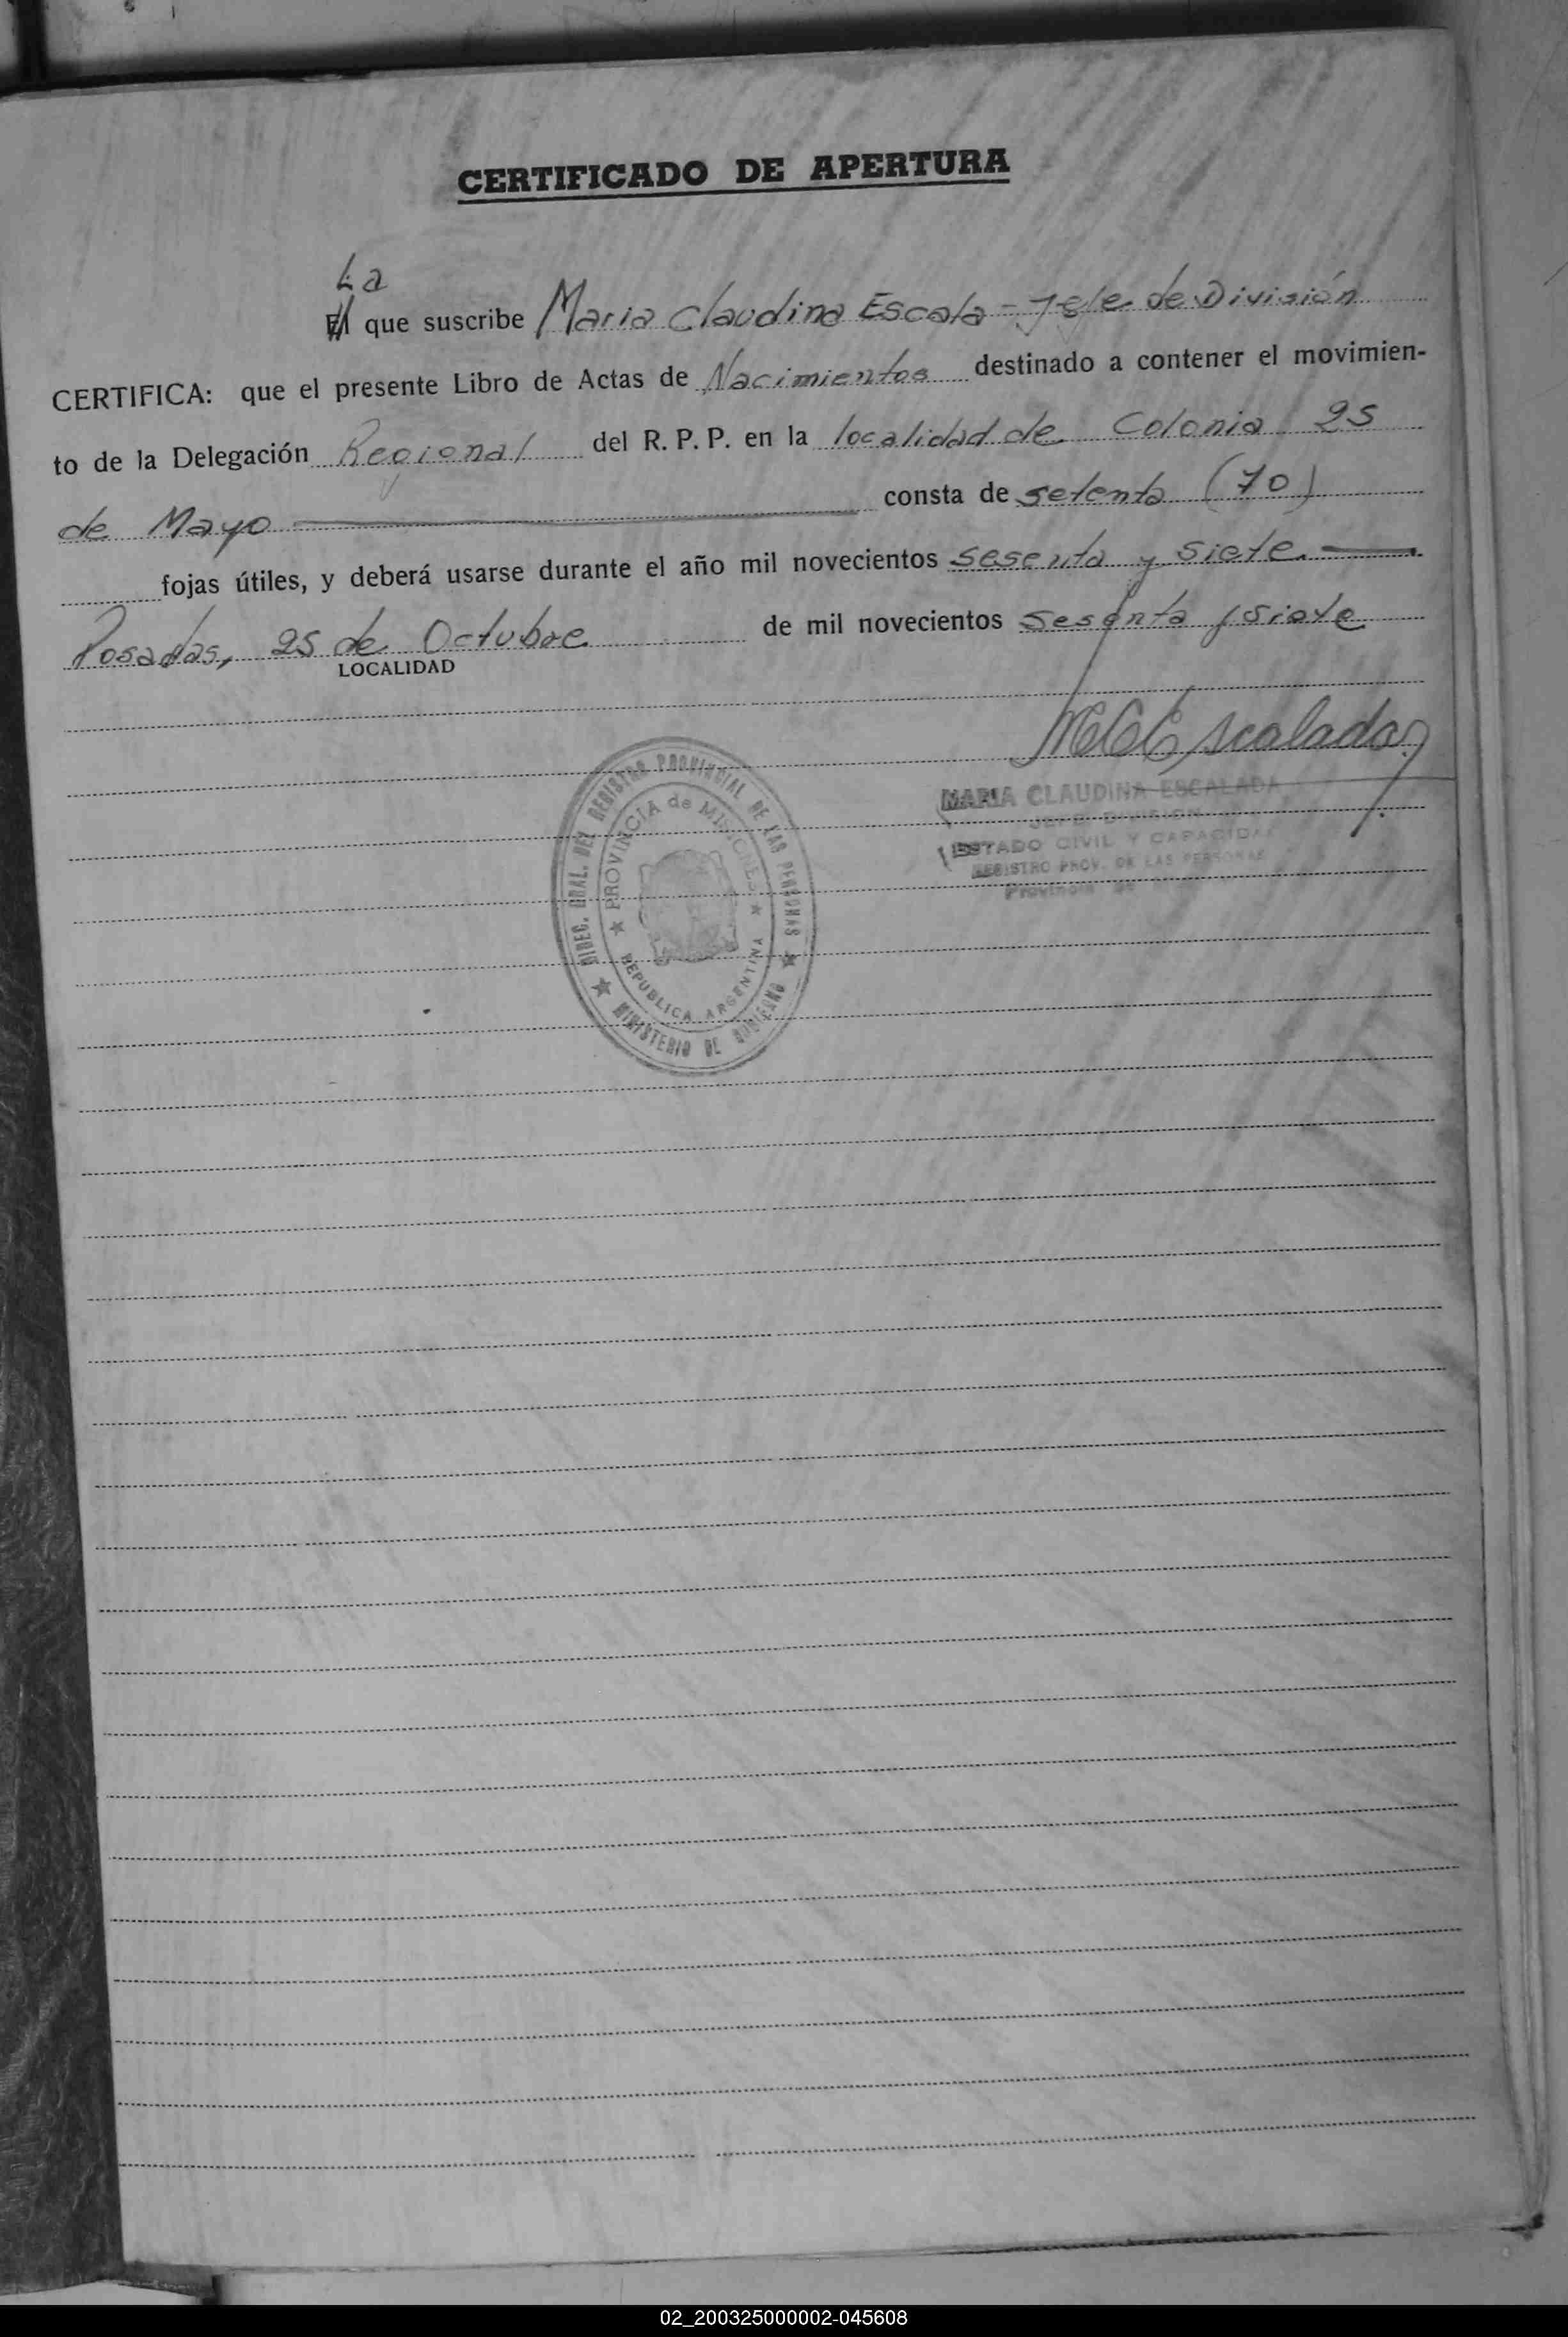 CERTIFICADO DE APERTURA
La
El que suscribe Maria Claudina Escala - Jefe de División
CERTIFICA: que el presente Libro de Actas de Nacimientos destinado a contener el movimien-
to de la Delegación Regional del R. P. P. en la localidad de Colonia 25
de Mayo consta de setenta (70)
fojas útiles, y deberá usarse durante el año mil novecientos sesenta y siete.
Posadas, 25 de Octubre de mil novecientos sesenta y siete
LOCALIDAD
MCEscalada
MARIA CLAUDINA ESCALADA
JEFE DIVISION
ESTADO CIVIL Y CAPACIDAD
REGISTRO PROV. DE LAS PERSONAS
Provincia de
DIREC. GRAL. DEL REGISTRO PROVINCIAL DE LAS PERSONAS
PROVINCIA de MISIONES
REPUBLICA ARGENTINA
MINISTERIO DE GOBIERNO
02_200325000002-045608